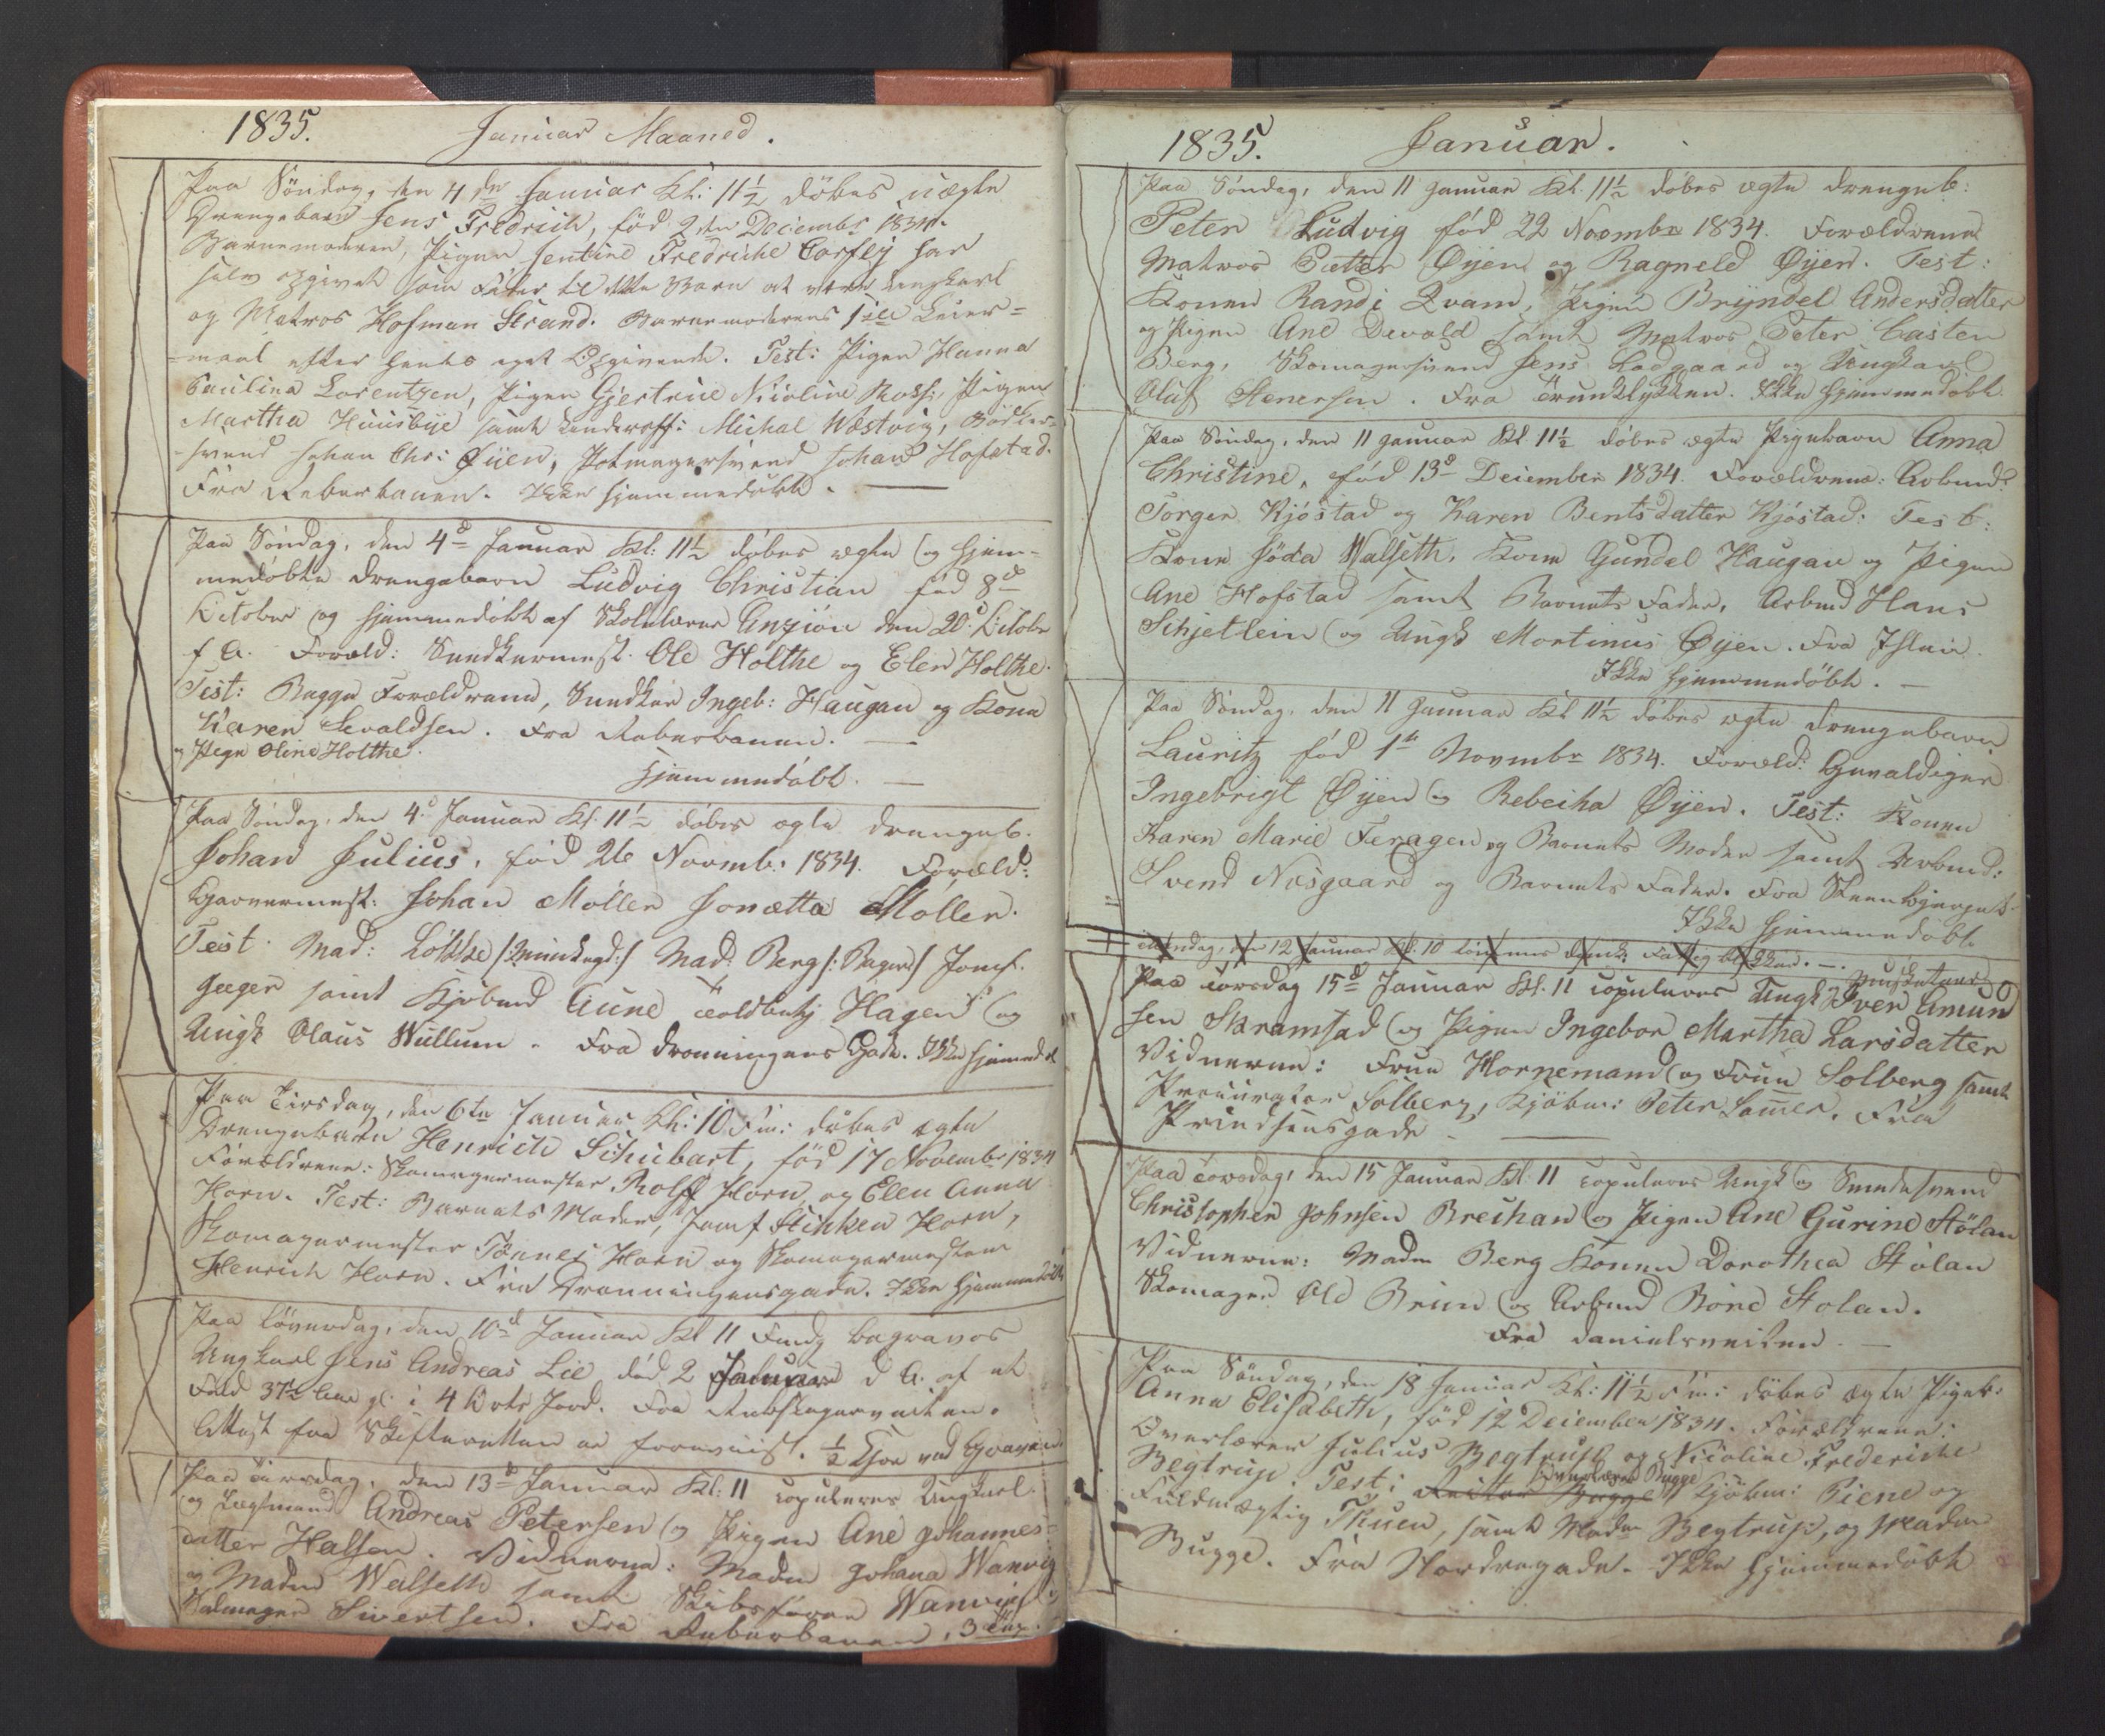 1835. Januar Maaned.
Paa Söndag, den 4de Januar Kl: 11½ döbes uægte
Drengebarn Jens Fredrich, född 2den Decembr 1834.
Barnemoderen, Pigen Jentine Fredriche Corfey har
selv opgivet som Fader til dette Barn at være Ungkarl
og Matros Hofman Strand. Barnemoderens 1ste Leier=
=maal efter hendes eget Opgivende. Test: Pigen Hanna
Paulina Lorentzen, Pigen Gjertrue Nicoline Ross:, Pigen
Martha Huusbye samt Michal Wæstvig, Bödker-
svend Johan Chr: Öien, Potmagersvend Johan Hofstad.
Fra Reberbanen. Ikke hjemmedöbt. —
Paa Söndag, den 4d Januar Kl: 11½ döbes ægte og hjem-
medöbte Drengebarn Ludvig Christian född 8d
October og hjemmedöbt af Skolelærer Anzion den 20d Octobr
f. A. Foræld: Snedkermest. Ole Holthe og Elen Holthe.
Test: Begge Forældrene, Snedker Ingeb: Haugan og Kone
Karen Sevaldsen. Fra Reberbanen. —
og Pige Oline Holthe.
hjemmedöbt. —
Paa Söndag, den 4d Januar Kl. 11½ döbes ægte Drengeb.
Johan Julius, född 26 Novmb. 1834. Foræld:
Garvermest: Johan Möller Jonætta Möller.
Test. Mad: Lökke Mad: Berg /: Bager :/ Jomf.
Jæger samt Kjöbmd Aune Toldbetj Hagen og
Ungk Olaus Wullum. Fra Dronningens Gade. Ikke hjemmd
Paa Tirsdag, den 6te Januar Kl: 10 Fm: döbes ægte
Drengebarn Henrich Schubart, född 17 Novembr 1834
Forældrene: Skomagermester Rolff Horn og Elen Anna
Horn. Test: Barnets Moder, Jomf Stinken Horn,
Skomagermester Tönnes Horn og Skomagermester
Henrich Horn. Fra Dronningensgade. Ikke hjemmedöbt
Paa Löverdag, den 10d Januar Kl 11 Fmdg begraves
Ungkarl Jens Andreas Lie död 2 Januar d. A. af et
Fald 37½ Aar gl. i 4 Jord. Fra Rebslagerveiten.
Attest fra Skifteretten er foreviist. ½ Tjen ved Graven
Paa Tirsdag, den 13d Januar Kl: 11 copuleres Ungkarl
og Andreas Petersen og Pigen Ane Johannes-
datter Halsen. Vidnerne: Madm Johana Wanvig
og Madm Walseth samt Skibsförer Wanvig
Sivertsen. Fra Reberbanen, 3
1835. Januar.
Paa Söndag, den 11 Januar Kl. 11½ döbes ægte Drengeb:
Peter Ludvig född 22 Novmbr 1834. Forældrene
Matros Petter Öyen og Ragneld Öyen. Test:
Konen Randi Qvam, Pigen Bryndel Andersdatter
og Pigen Ane Devold samt Matros Peter Casten
Berg, Skomagersvend Jens Lodgaard og Ungkarl
Oluf Stenersen. Fra Ikke hjemmedöbt.
Paa Söndag, den 11 Januar Kl. 11½ döbes ægte Pigebarn Anna
Christine, född 13d December 1834. Forældrene: Arbmd
Torger Kjöstad og Karen Bentsdatter Kjöstad: Test:
Kone Walseth, Kone Gundel Haugan og Pigen
Ane Hofstad samt Barnets Fader, Arbmd Hans
Schjetlein og Ungk Mortinus Öyen. Fra Ihlen.
Ikke hjemmedöbt. —
Paa Söndag, den 11 Januar Kl 11½ döbes ægte Drengebarn
Lauritz född 1te Novembr 1834. Foræld: Gevaldiger
Ingebrigt Öyen og Rebecka Öyen. Test: Konen
Karen Marie Feragen og Barnets Moder samt Arbmd:
Svend Næsgaard og Barnets Fader. Fra Steenbjerget.
Ikke hjemmedöbt
Mandag, den 12 Januar Kl. 10
Paa Torsdag 15d Januar Kl. 11 copuleres Ungk og Musketeer Iver Amund
sen Skramstad og Pigen Ingebor Martha Larsdatter
Vidnerne: Frue Hornemand og Frue Solberg samt
Procurator Solberg, Kjöbm: Peter Lamer. Fra
Prindsensgade —
Paa Torsdag, den 15 Januar Kl. 11 copuleres Ungk og Smedesvend
Christopher Johnsen Breihan og Pigen Ane Gurine Stölan
Vidnerne: Madm Berg Konen Dorothea Stölan
Skomager Ole Brun og Arbmd Stolan.
Fra Danielsveiten —
Paa Söndag, den 18 Januar Kl: 11½ Fm: döbes ægte Pigeb:
Anna Elisabeth, född 12 December 1834. Forældrene:
Overlærer Julius Begtrup og Nicoline Frederiche
Begtrup. Test: Rector Bugge Overlærer Bugge Kjöbm: Piene og
Fuldmægtig Thuen, samt Madm Begtrup, og Madm
Bugge. Fra Nordregade. Ikke hjemmedöbt